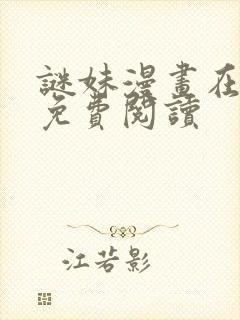 謎妹漫畫在
免費閱讀
江若影